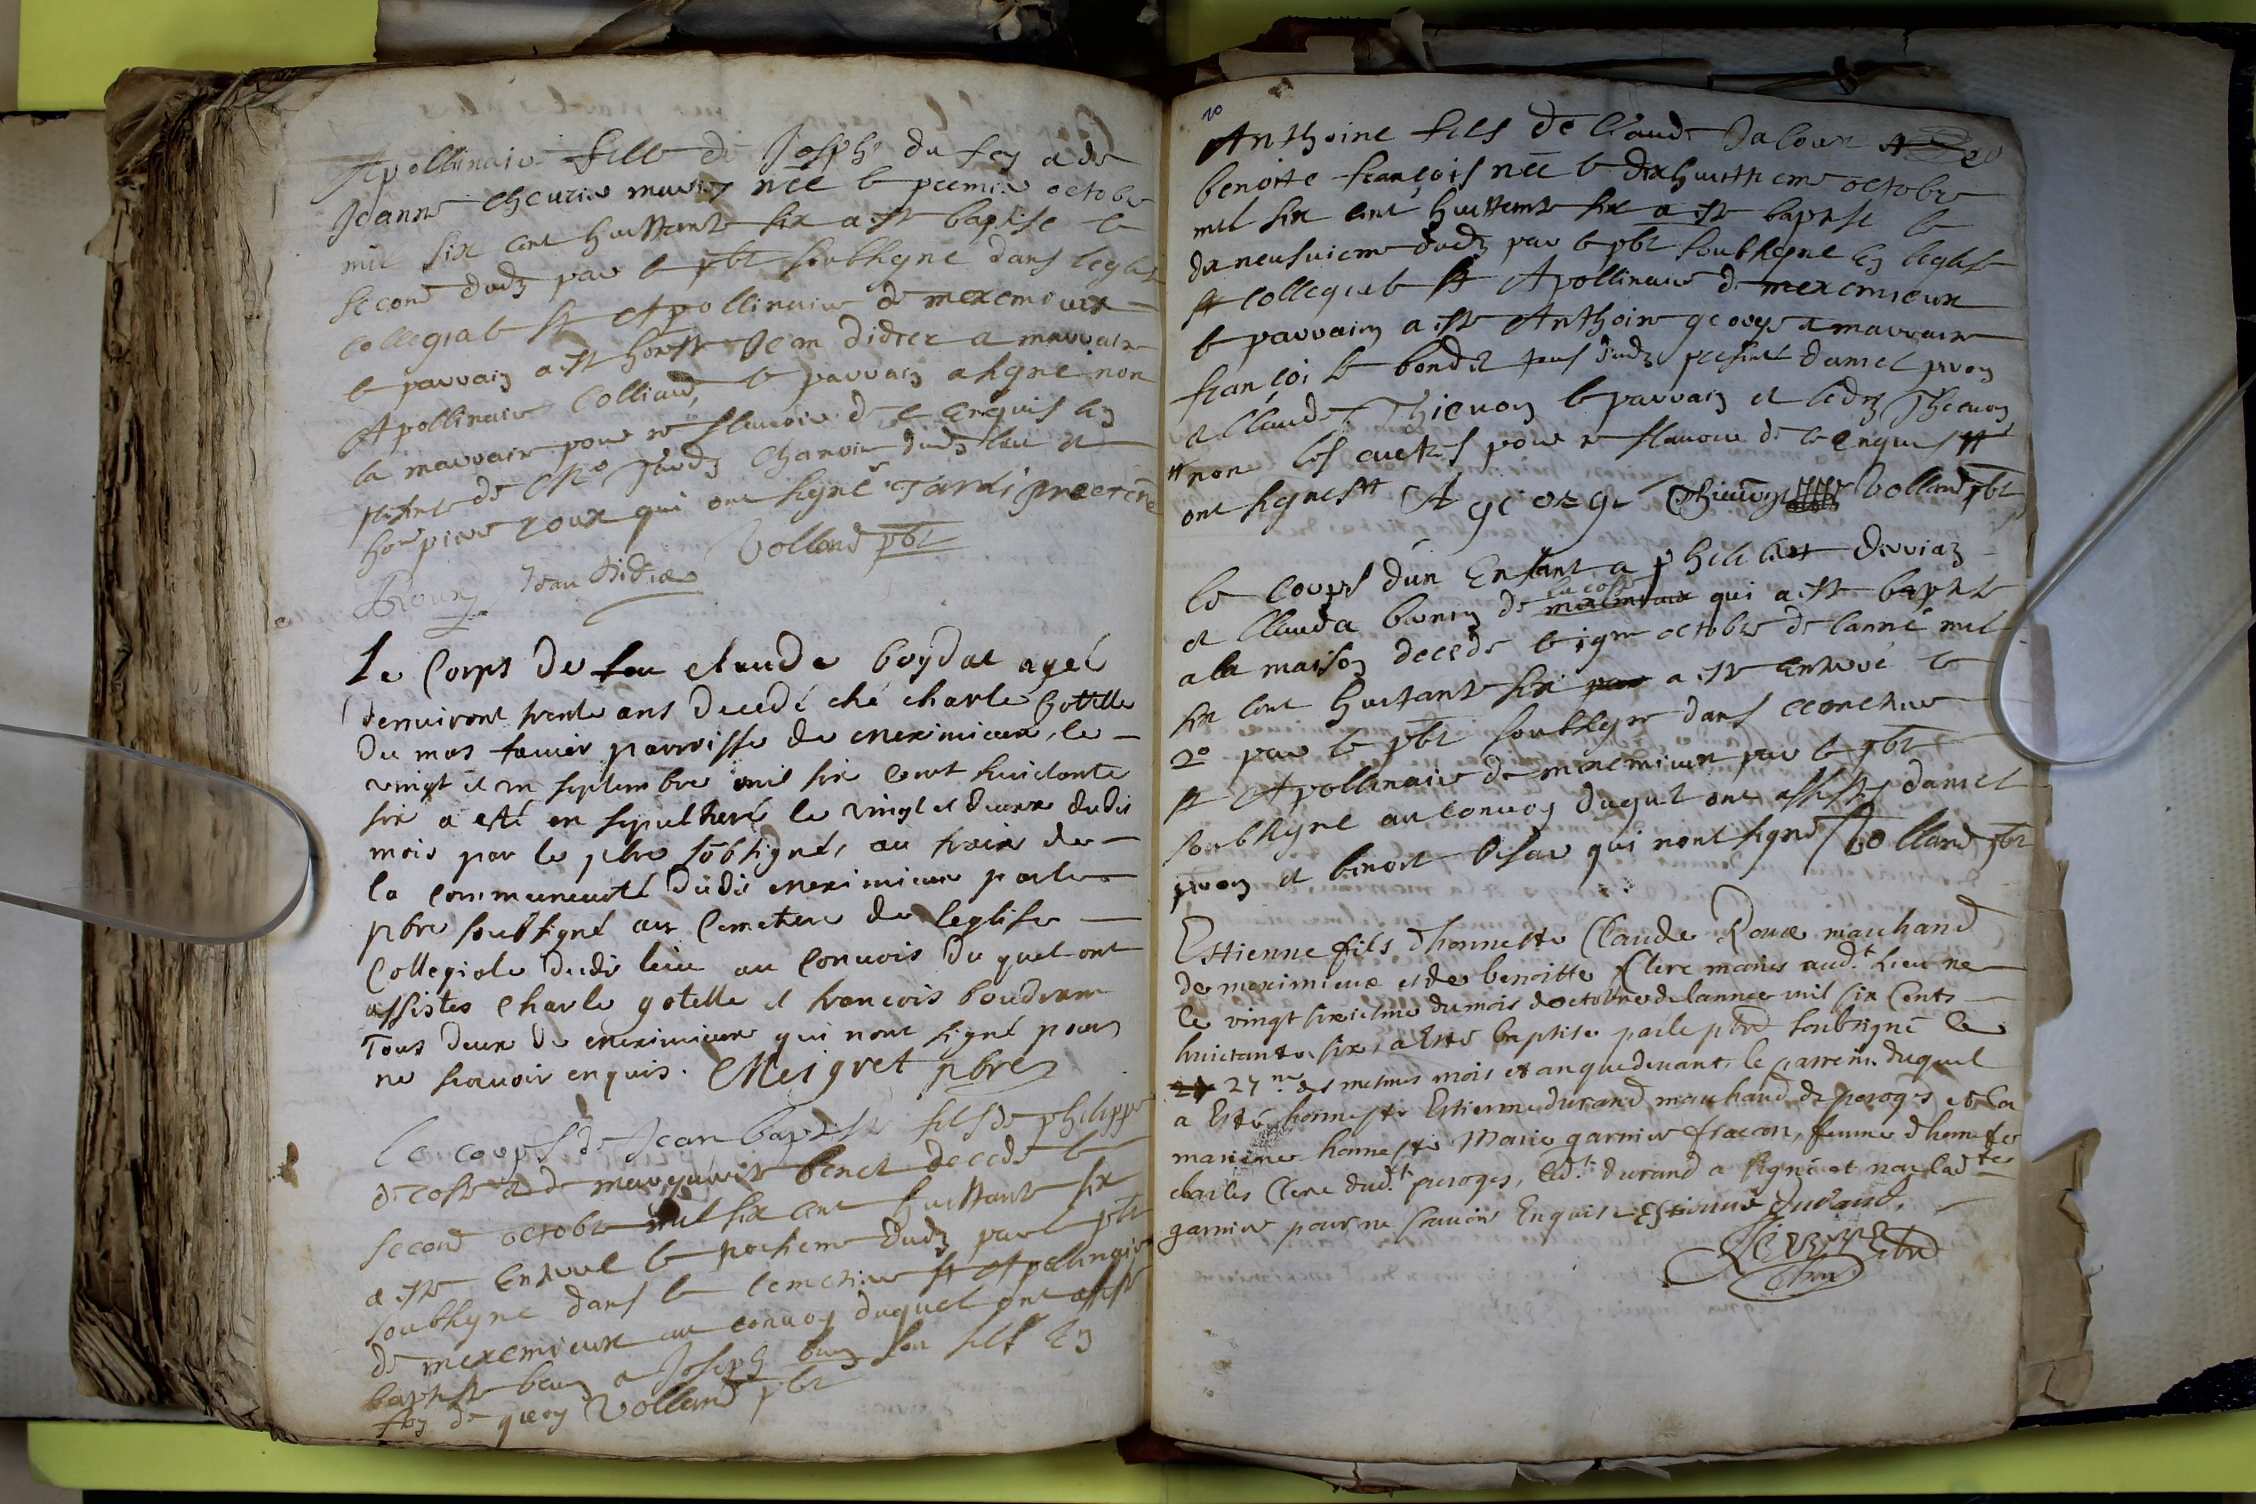 Apollinaire fille de Joseph du fey a de
Jeanne mariez née le premier octobre
mil six cent huittante six a este baptise le
second dudz par le pbr soubsigne dans leglise
collegiale St Apollinaire de meximieux
le parrain a este honste Jean didier a marraine
Apollinaire Colliard, le parrain a signe non
la marraine pour ne scavoir de ce enquis en
psence de chanoine dudz lieu et
pierre roux qui ont signé Tardi
Roux Jean Didier Volland pbr
Le Corps de feu claude boydat agé
denviront trente ans decedé ché charle gotelle
du mas parroisse de meximieux, le
vingt et un septembre mil six cent huictante
six a esté en sepulturé le vingt et deuxe dudit
mois par le pbre sobsigné, au frais de
la communauté dudit meximieux par le
pbre soubsigné au Cemetiere de leglise
Collegiale dudit lieu au Convois du quel ont
assistes Charle gotelle et francois boudran
Tous deux de meximieux qui nont signé pour
ne scavoir enquis. Meigret pbre
Le corps de Jean baptiste fils de philippe
decoste a de marguerite benet decede le
second octobre mil six cent huittante six
a este enterré le troisieme dudz par le pbr
soubsigne dans le cemetiere St Apolinaire
de meximieux au convoy duquel ont assisté
baptiste a Joseph son fils en
foy de quoy Volland pbr
20
Anthoine fils de Claude Jacour et de
benoite françois née le dixhuittieme octobre
mil six cent huittante six a este baptise le
dixneufvieme dudz par le pbr soubsigne en leglise
St collegiale St Apollinaire de meximieux
le parrain a este Anthoine george a marraine
françoi le bondet tous dudz present daniel pron
et Claude Thievon le parrain et ledz Thievon
non les autres pour ne scavoir de ce enquis
ont signes A george Thievon Volland pbr
le corps d'un Enfant a philibert derviaz
et Clauda de la cos meximieux qui a este baptise
a la maison decede le 19me octobre de lanné mil
six cent huittante six par a este enterré le
20 par le pbr soubsigne dans cemetiere
St Apollinaire de meximieux par le pbr
soubsigne au convoy duquel ont assistes daniel
pron et benoit qui nont signé Volland pbr
Estienne fils dhonneste Claude Roux marchand
de meximieux et de benoitte Clerc mariés audt. Lieu ne
le vingt sixiesme du mois doctobre de lannee mil six Cents
huictante six, a Esté baptise par le pbre soubsigné le
27 27me des mesmes mois et an que devant, le parrein duquel
a Esté honneste Estienne durand marchand de peroges et la
mareine honneste Marie garnier fracon, femme dhonneste
charles Clerc dudt. peroges, ledt. durand a signé et non ladte
garnier pour ne scavoir Enquise Estienne durand.